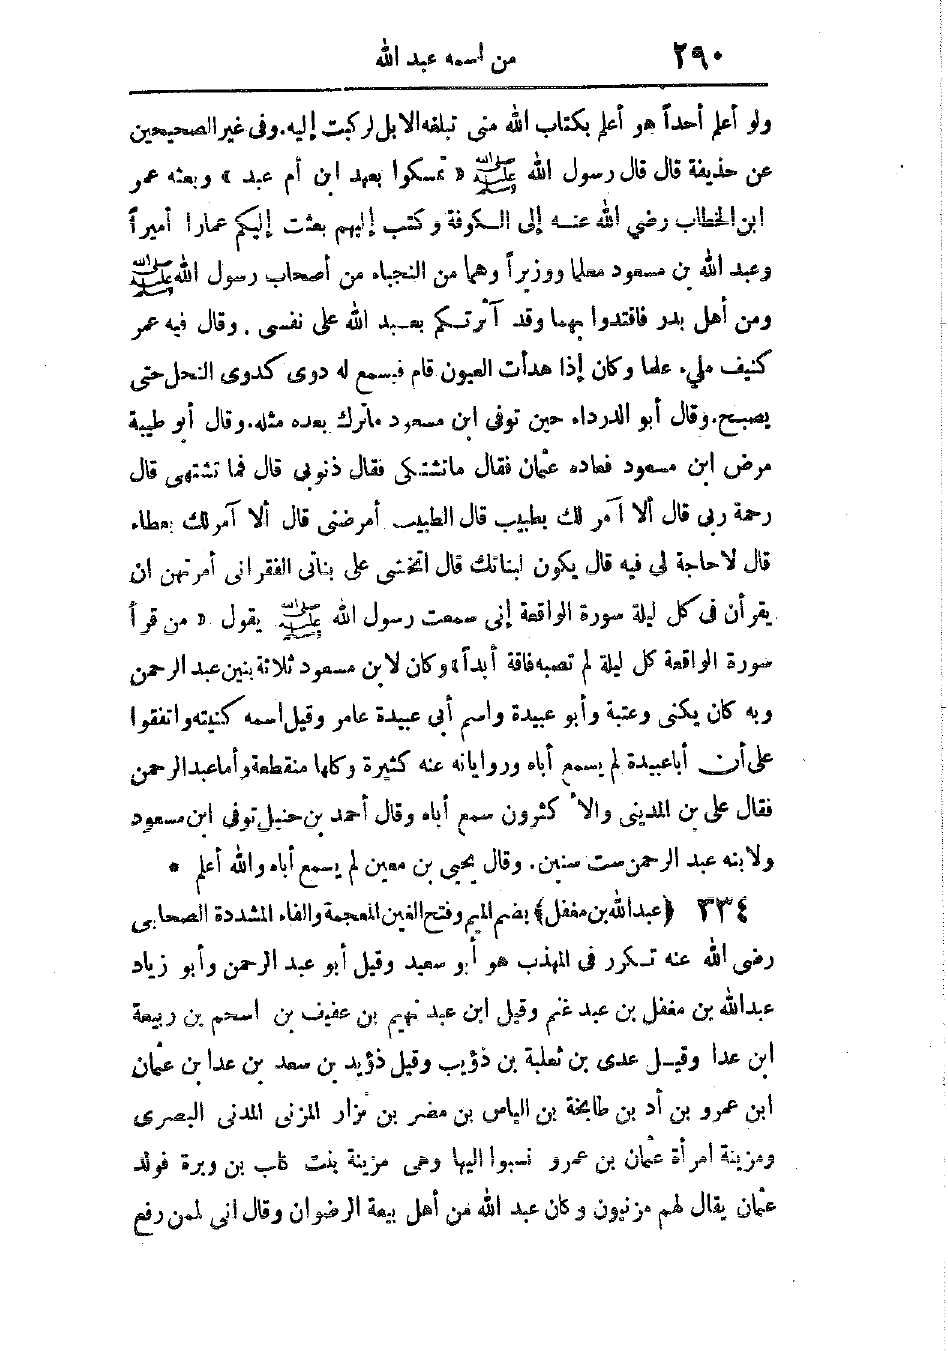 ٢٩٠ من اسمه عبد الله
ولو أعلم أحداً هو أعلم بكتاب الله منى تبلغه الابل لركبت إليه. وفى غير الصحيحين
عن حذيفة قال قال رسول الله ﷺ « تمسكوا بعهد ابن أم عبد » وبعثه عمر
ابن الخطاب رضي الله عنه إلى الكوفة وكتب إليهم بعثت إليكم عمارا أميراً
وعبد الله بن مسعود معلما ووزيراً وهما من النجباء من أصحاب رسول الله ﷺ
ومن أهل بدر فاقتدوا بهما وقد آثرتكم بعبد الله على نفسى. وقال فيه عمر
كنيف ملىء علما وكان إذا هدأت العيون قام فيسمع له دوى كدوى النحل حتى
يصبح. وقال أبو الدرداء حين توفى ابن مسعود ماترك بعده مثله. وقال أبو طيبة
مرض ابن مسعود فعاده عثمان فقال ماتشتكى فقال ذنوبى قال فما تشتهى قال
رحمة ربى قال ألا آمر لك بطبيب قال الطبيب أمرضنى قال ألا آمر لك بعطاء
قال لا حاجة لي فيه قال يكون لبناتك قال اتخشى على بناتى الفقر انى أمرتهن ان
يقرأن فى كل ليلة سورة الواقعة إنى سمعت رسول الله ﷺ يقول « من قرأ
سورة الواقعة كل ليلة لم تصبه فاقة أبداً » وكان لابن مسعود ثلاثة بنين عبد الرحمن
وبه كان يكنى وعتبة وأبو عبيدة واسم أبي عبيدة عامر وقيل اسمه كنيته واتفقوا
على أن أبا عبيدة لم يسمع أباه ورواياته عنه كثيرة وكلها منقطعة وأما عبد الرحمن
فقال على بن المدينى والأكثرون سمع أباه وقال أحمد بن حنبل توفى ابن مسعود
ولابنه عبد الرحمن ست سنين. وقال يحيى بن معين لم يسمع أباه والله أعلم *
٣٣٤ ﴿عبد الله بن مغفل﴾ بضم الميم وفتح الغين المعجمة والفاء المشددة الصحابى
رضى الله عنه تكرر فى المهذب هو أبو سعيد وقيل أبو عبد الرحمن وأبو زياد
عبد الله بن مغفل بن عبد غنم وقيل ابن عبد نهيم بن عفيف بن اسحم بن ربيعة
ابن عدا وقيل عدى بن ثعلبة بن ذؤيب وقيل ذؤيد بن سعد بن عدا بن عثمان
ابن عمرو بن أد بن طابخة بن الياس بن مضر بن نزار المزنى المدنى البصرى
ومزينة امرأة عثمان بن عمرو نسبوا اليها وهى مزينة بنت كلب بن وبرة فولد
عثمان يقال لهم مزنيون وكان عبد الله من أهل بيعة الرضوان وقال انى لممن رفع